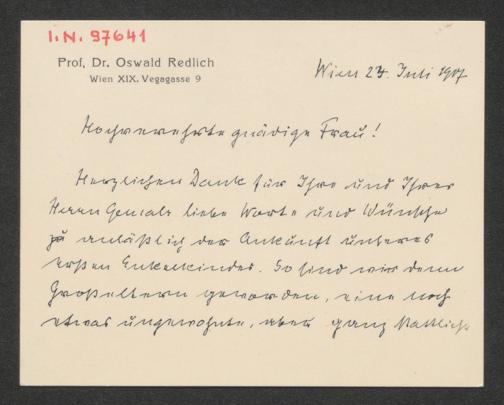 I.N. 97641
Prof. Dr. Oswald Redlich
Wien XIX. Vegagasse 9
Wien 23. Juli 1917
Hochverehrte gnädige Frau!
Herzlichen Dank für Ihre und Ihres
Herrn Gemals liebe Worte und Wünsche
anläßlich der Ankunft unseres
ersten Enkelkindes. So sind wir denn
Großeltern geworden, eine noch
etwas ungewohnte, aber ganz stattliche